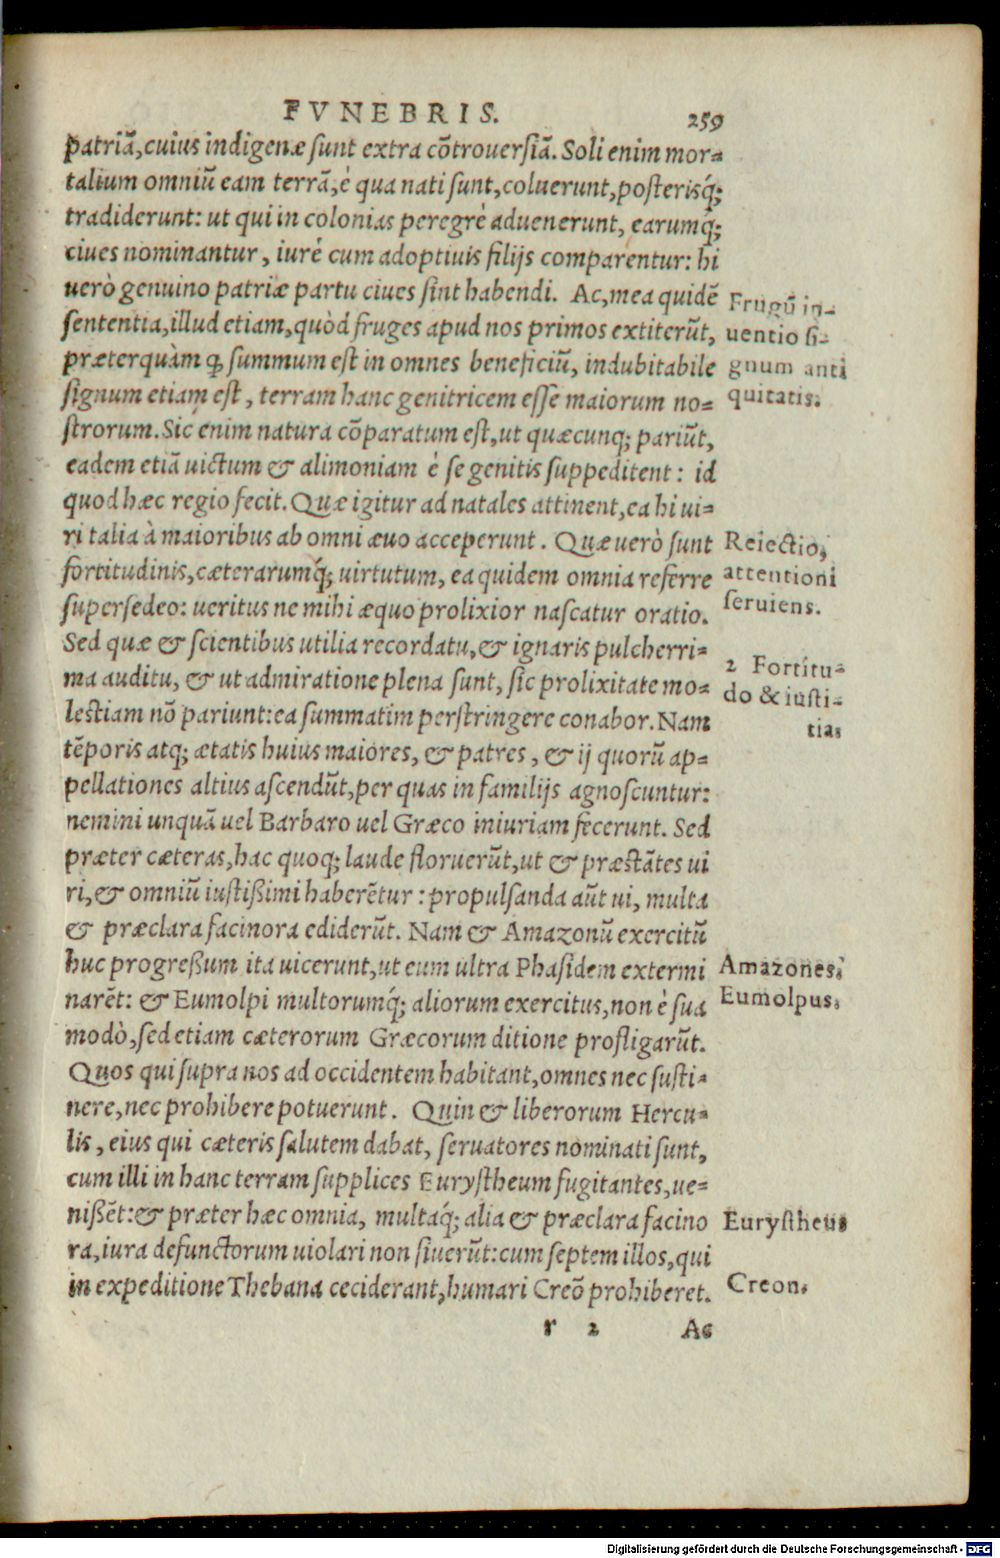 FVNEBRIS. 259
patriā, cuius indigenæ sunt extra cōtrouersiā. Soli enim mor=
talium omniū eam terrā, è qua nati sunt, coluerunt, posterisq́;
tradiderunt: ut qui in colonias peregrè aduenerunt, earumq́;
ciues nominantur, iuré cum adoptiuis filijs comparentur: hi
uerò genuino patriæ partu ciues sint habendi. Ac, mea quidē
Frugū in-
sententia, illud etiam, quòd fruges apud nos primos extiterūt,
uentio si-
præterquàm ꝙ summum est in omnes beneficiū, indubitabile
gnum anti
signum etiam est, terram hanc genitricem esse maiorum no=
quitatis.
strorum. Sic enim natura cōparatum est, ut quæcunq; pariūt,
eadem etiā uictum & alimoniam è se genitis suppeditent: id
quod hæc regio fecit. Quæ igitur ad natales attinent, ea hi ui=
ri talia à maioribus ab omni æuo acceperunt. Quæ uerò sunt
Reiectio,
fortitudinis, cæterarumq́; uirtutum, ea quidem omnia referre
attentioni
supersedeo: ueritus ne mihi æquo prolixior nascatur oratio.
seruiens.
Sed quæ & scientibus utilia recordatu, & ignaris pulcherri=
ma auditu, & ut admiratione plena sunt, sic prolixitate mo=
2 Fortitu-
do & iusti-
lestiam nō pariunt: ea summatim perstringere conabor. Nam
tias
tēporis atq; ætatis huius maiores, & patres, & ij quorū ap=
pellationes altius ascendūt, per quas in familijs agnoscuntur:
nemini unquā uel Barbaro uel Græco iniuriam fecerunt. Sed
præter cæteras, hac quoq; laude floruerūt, ut & præstātes ui
ri, & omniū iustißimi haberētur: propulsanda aūt ui, multa
& præclara facinora ediderūt. Nam & Amazonū exercitū
huc progreßum ita uicerunt, ut eum ultra Phasidem extermi
Amazones.
narēt: & Eumolpi multorumq́; aliorum exercitus, non è sua
Eumolpus.
modò, sed etiam cæterorum Græcorum ditione profligarūt.
Quos qui supra nos ad occidentem habitant, omnes nec susti=
nere, nec prohibere potuerunt. Quin & liberorum Hercu=
lis, eius qui cæteris salutem dabat, seruatores nominati sunt,
cum illi in hanc terram supplices Eurystheum fugitantes, ue=
nißēt: & præter hæc omnia, multaq́; alia & præclara facino
Eurystheus
ra, iura defunctorum uiolari non siuerūt: cum septem illos, qui
in expeditione Thebana ceciderant, humari Creō prohiberet.
Creon.
r 2 Ac
Digitalisierung gefördert durch die Deutsche Forschungsgemeinschaft - DFG